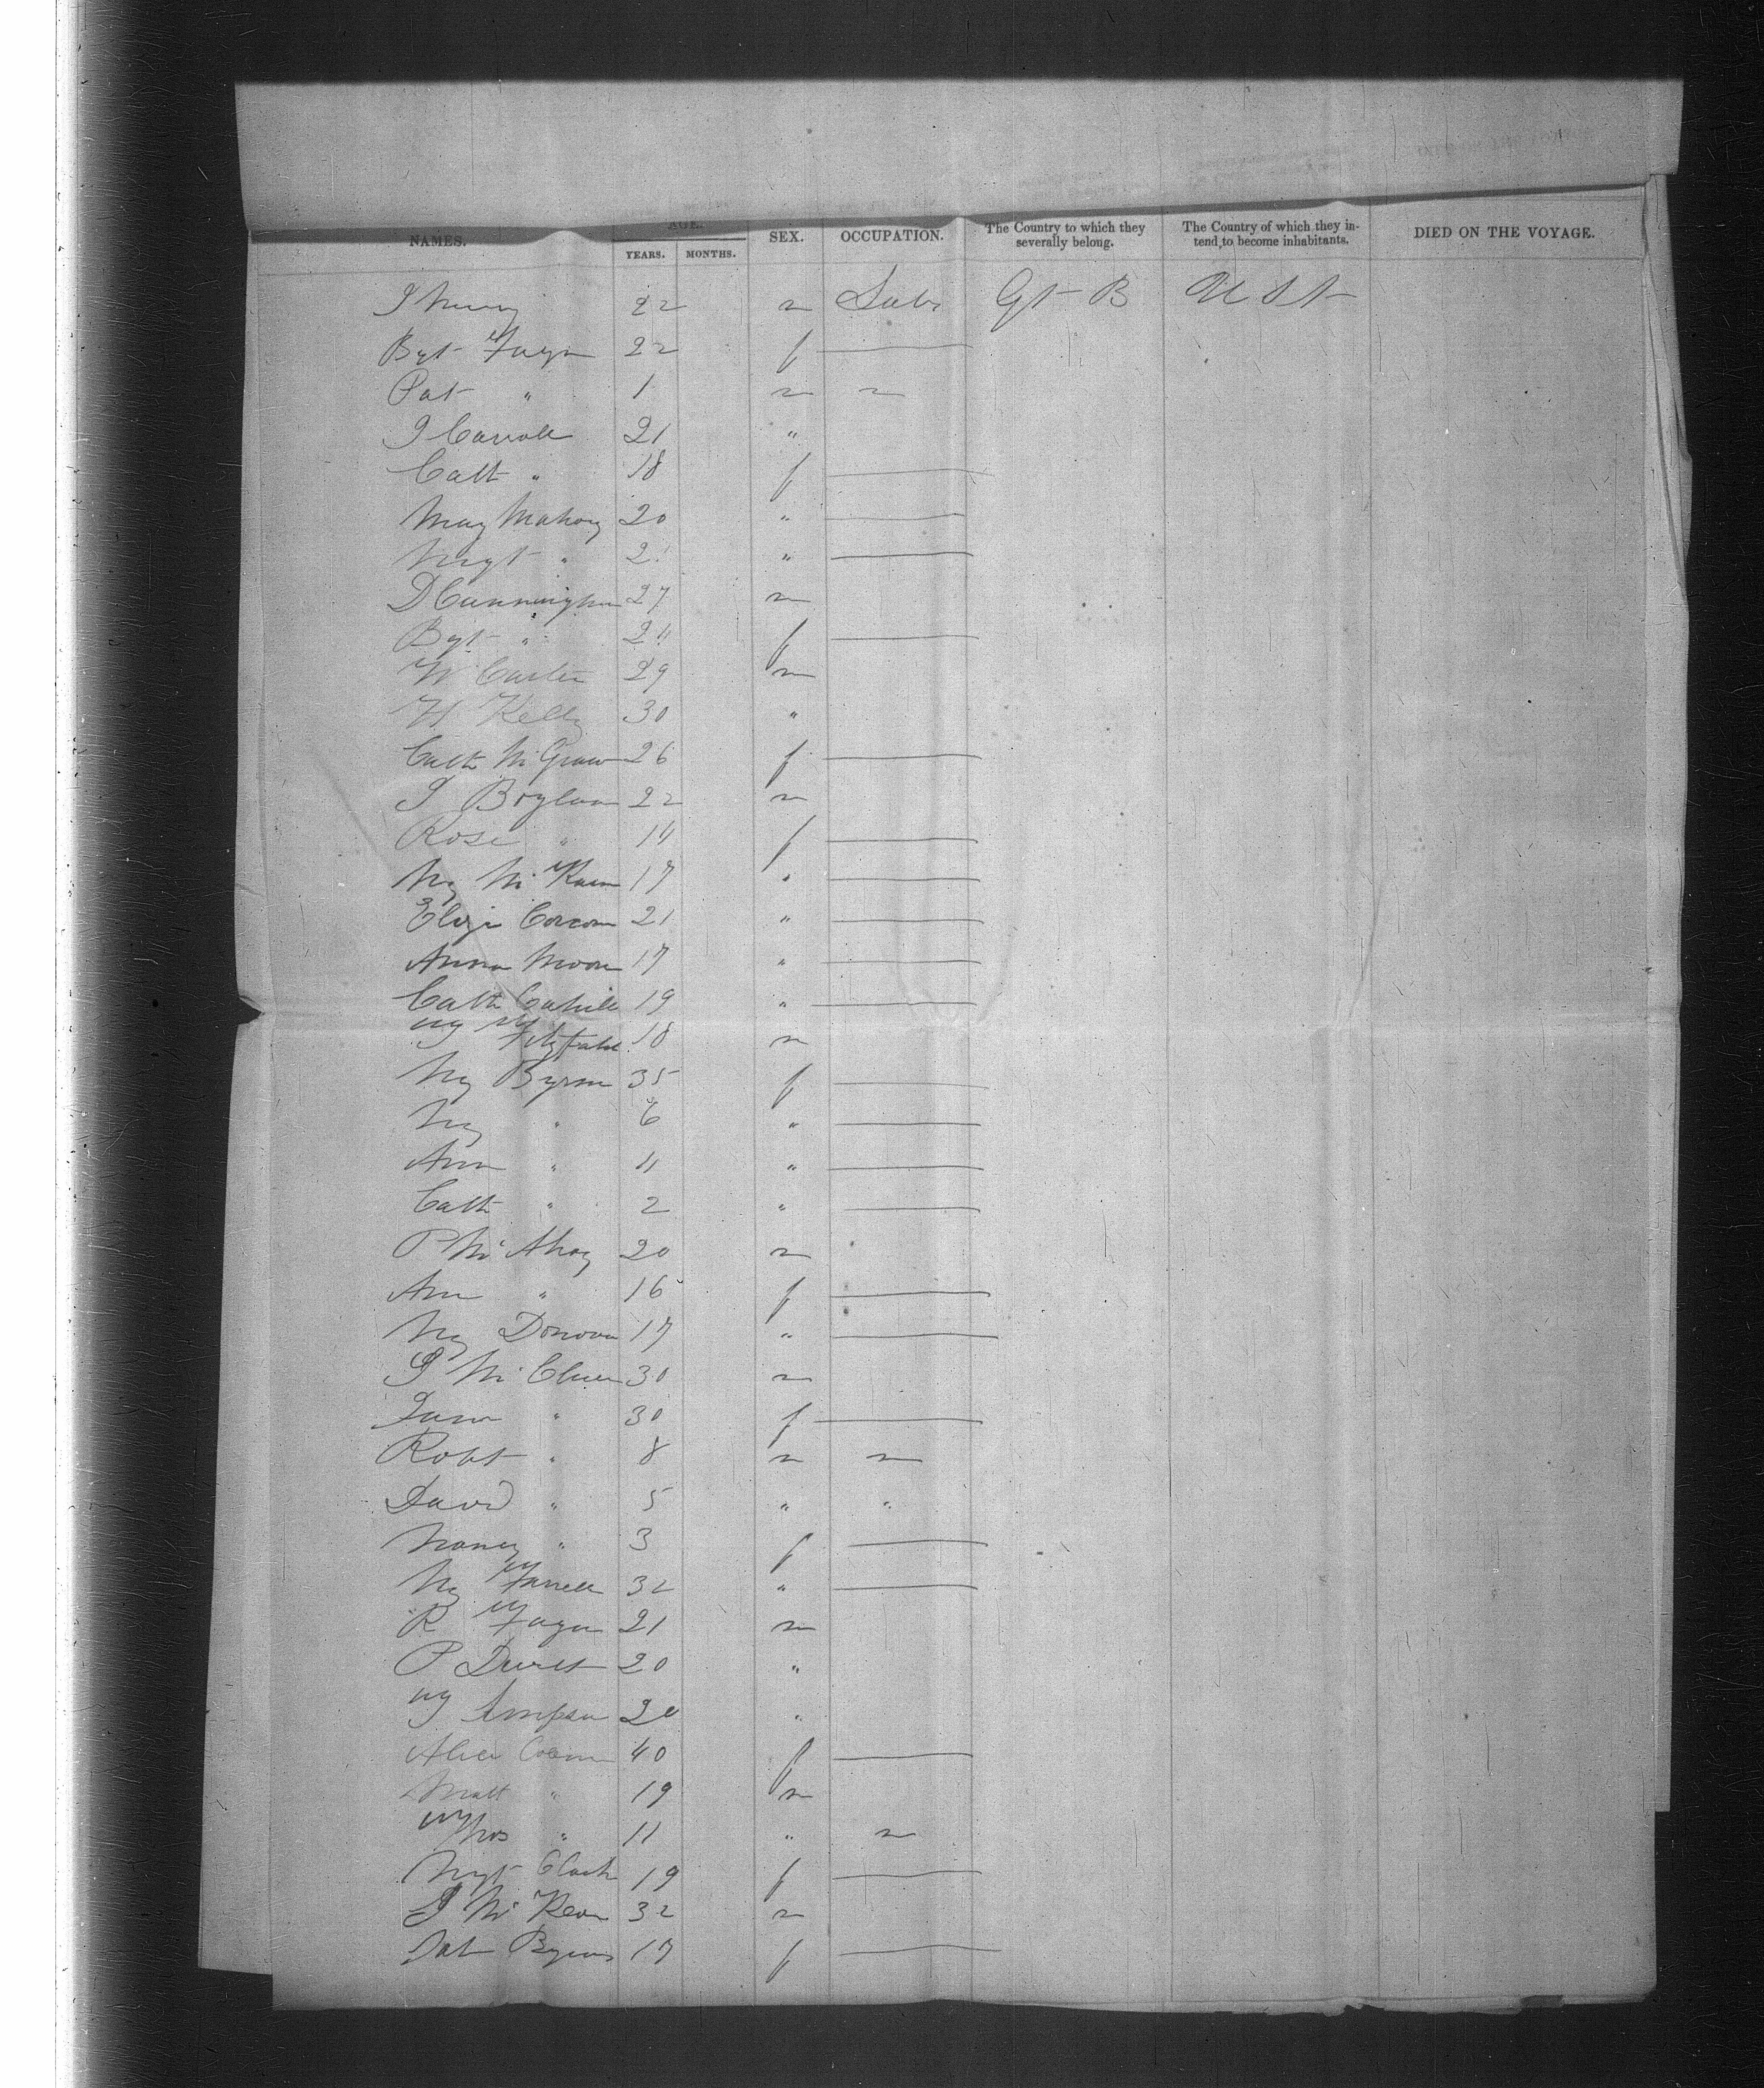 NAMES. AGE. YEARS. MONTHS. SEX. OCCUPATION. The Country to which they severally belong. The Country of which they intend to become inhabitants. DIED ON THE VOYAGE.
22 m Labr Gt B U S A
Bgt Fagan 22 f —
Pat " 1 m ~
J Carroll 21 "
Cath " 18 f —
Mary Mahony 20 " —
Mgt " 2 " —
D Cunningham 27 m
Bgt " 24 f —
W Carter 29 m
H Kelly 30 "
Cath McGraw 26 f —
J Boylan 22 m
Rose " 14 f —
My McKeon 17 " —
Eliza Corcoran 21 " —
Anna Moore 17 " —
Cath Cahill 19 " —
18 m
My Byrne 35 f —
My " 6 " —
Ann " 4 " —
Cath " 2 " —
P 20 m
Ann " 16 f —
My Donovan 17 " —
J McClure 30 m
" 30 f —
Robt " 8 m ~
David " 5 " "
Nancy " 3 f —
My Farrell 32 " —
R Fagan 21 m
P 20 "
Simpson 20 "
Alice 40 f —
Matt " 19 m
Thos " 11 " ~
Mgt Clark 19 f —
J McKeon 32 m
17 f —